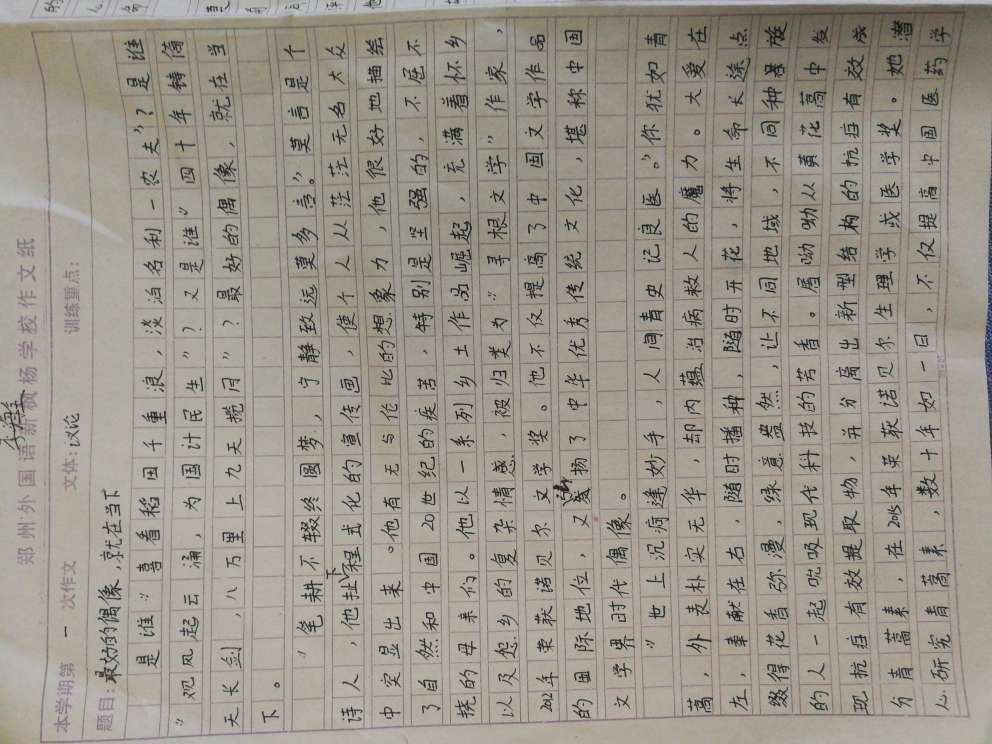 郑州外国语新枫杨学校作文纸
本学期第 一 次作文 文体:议论 训练重点:
题目:最好的偶像,就在当下
是谁“喜看稻田千重浪,淡泊名利一农夫”?是谁
“观风起云涌,为国计民生”?又是谁“四十年铸倚
天长剑,八万里上九天揽月”?最好的偶像,就在当
下。
“笔耕不辍终圆梦,宁静致远莫多言。”莫言是个
诗人,他扯下程式化的宣传画,使个人从茫茫无名大众
中突显出来。他有无与伦比的想象力,他很好地描绘
了自然和中国20世纪的疾苦,特别是坚强的,不屈不
挠的母亲们。他以一系列乡土作品崛起,充满着怀乡
以及怨乡的复杂情感,被归类为“寻根文学”作家,
2012年荣获诺贝尔文学奖。他不仅提高了中国文学作品
的国际地位,又发扬了中华优秀传统文化,堪称中国
文学界时代偶像。
“世上沉疴逢妙手,人间青史记良医。”你犹如青
高,外表朴实无华,却内蕴治病救人的魔力。大爱在
左,奉献在右,随时播种,随时开花,将生命长途点
缀得花香弥漫,绿意盎然,让不同地域,不同种族
的人一起吮吸现代科技的芳香。屠呦呦从黄花蒿中发
现抗疟有效提取物,并分离出新型结构的抗疟有效成
分青蒿素,在2015年荣获诺贝尔生理学或医学奖。她潜
心研究青蒿素,数十年如一日,不仅提高中国医药学